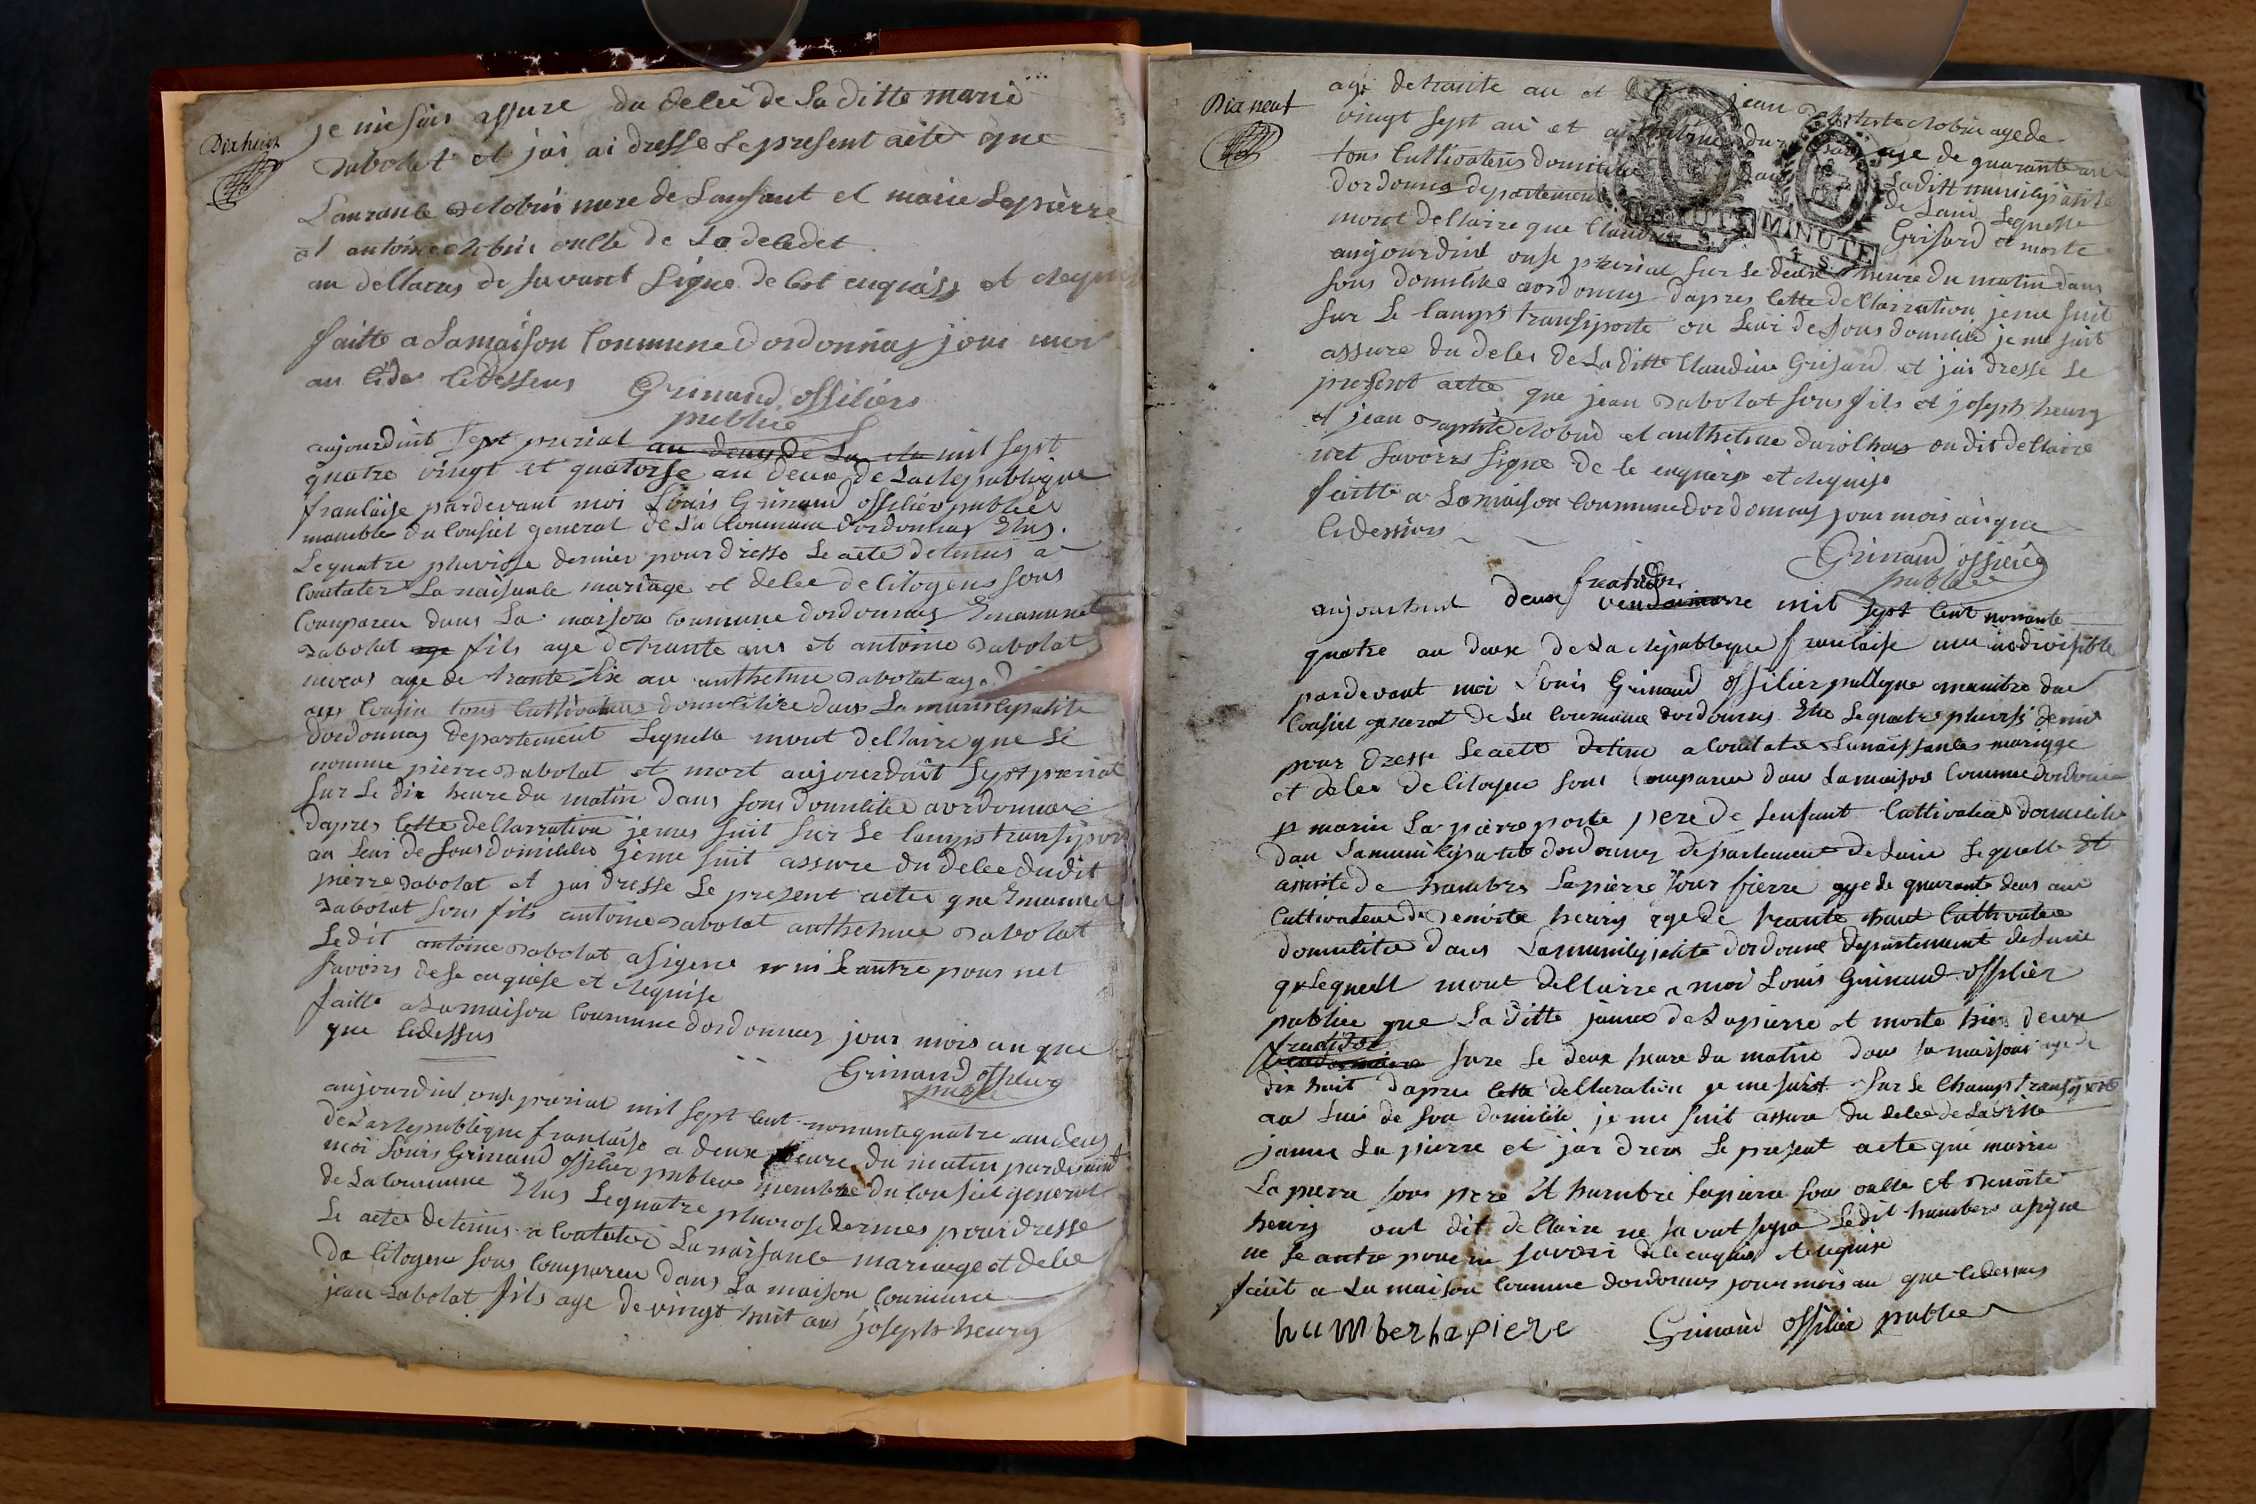 Dix huit
je me suis assure du deleè de la ditte marie
Rabolat et jai ai dresse le present aete que
Laurance Robin mere de Lanfant et marie Lapierre
et antoine Robin onlle de La deledet
faitte a Lamaison Commune dordonnas jour moi
an lides lidessus Grinand offilièrs
publiè
aujourdhuit sept prerial an deux de La Re mil sept
quatre vingt et quatorse an deux de La Republique
franlaise pardevant moi Louis Grinand offilièr publier
mamble du Consiel general de La Commune dordonnas Elus
Le quatre pluviose dernier pour dresse Le aete detenus a
Contater La naisanle mariage et delee de litogens sons
Comparen dans La maison commune dordonnas Emanuuel
Rabolat age fils age de trante ans et antoine Rabolat
neveus age de trante six an anthelme Rabolat age
ans Cousin tous Cultivateurs domilitire dans La munilipalité
dordonnas departement Lequelle mont dellaire que Le
nomme pierre Rabolat et mort aujourdhuit sept prerial
sur Le dix heure du matin dans sons domilile aordonnas
dapres lette dellarration jemes suit sur Le lamps transport
au Leui de sons domilile jeme suit assure du delee dudit
pierre Rabolat et jai dresse Le present aete que Emanuel
Rabolat sons fils antoine Rabolat anthelme Rabolat
Ledit antoine Rabolat a signe ni Le autre pour net
savoirs de le enquise et Requise
faitte a Lamaison Commune dordonnas jour mois an que
que lidessus
Grinand offilierg
publie
aujourdhui onse prerial mil sept lent nonante quatre an deus
de La Republique franlaise a deux heure du matin pardevant
moi Louis Grinand offilier publiee membre du Consiel general
de La Commune Elus Lequatre pluviose dernies pour dresse
Le aetes detenus a Contater La naisanle mariage et delee
de litogens sons Comparen dans La maison Commune
jean Rabolat fils age de vingt huit ans joseph henry
Dix neuf
age de trante an et jean Babtiste Robin age de
vingt sept an et age de quarante an
tous Cultivateurs domilile dans La ditte munilipalité
dordonnas departement de Lain Lequelle
mont dellaire que Claudine Grisard et morte
aujourdhui onse prerial sur Le deux heure du matin dans
sons domilile aordonnas dapres lette dellarration jeme suit
sur Le lamps transporte au Leui de sons domilile je me suit
assure du delee de La ditte Claudine Grisard et jai dresse Le
present aete que jean Rabolat sons fils et joseph henry
et jean Baptiste Robin et anthelme on dit dellaire
net savoirs signe de le enquise et Requise
faitte a Lamaison Commune dordonnas jour mois an que
lidessus
Grinand offilierg
publiee
MINUTE
MINUTE
frutidor
aujourdhui deux vendemiaire mil sept lent nonante
quatre an deux de La Republeque franlaise une indivisible
pardevant moi Louis Grinand offilier publique membre du
Consiel general de La Commune dordonnas Elu Le quatre pluviose dernie
pour dresse Le aete detenu a Contater La naissanle mariage
et delee de litogen sont Comparen dans Lamaison Commune dordonna
marin La pierre porte pere de lenfant Cultivateur domilile
dan Lamunilipalité dordonnas departement de Lain Lequelle Et
assiste de humbert Lapierre Son frerre age de quarante deus ans
Cultivateur de Benoite henry age de trante huit Cultivateur
domilile dans Lamunilipalité dordonne departement de Lain
qu Lequell mont dellaire a moi Louis Grinand offilier
publiee que La ditte janne de Lapierre et morte hier deux
frutidor
vendemiaire sure Le deux heure du matin dans sa maison age de
dix huit dapres lette dellaration je me suit sur Le Champ transporté
au Lui de son domilile je me suit assure du delee de La ditte
janne La pierre et jai dress Le present aete que marin
La pierre sons pere Et humbre lapierre sons onlle Et Benoite
henry ont dit dellaire ne savoit signe Ledit humbert a signe
ne le autre pour ne savoir de le enquis et Requise
fait a La maison Commune dordonnas jour mois an que lidessus
humberlapiere Grinand offilier publiee